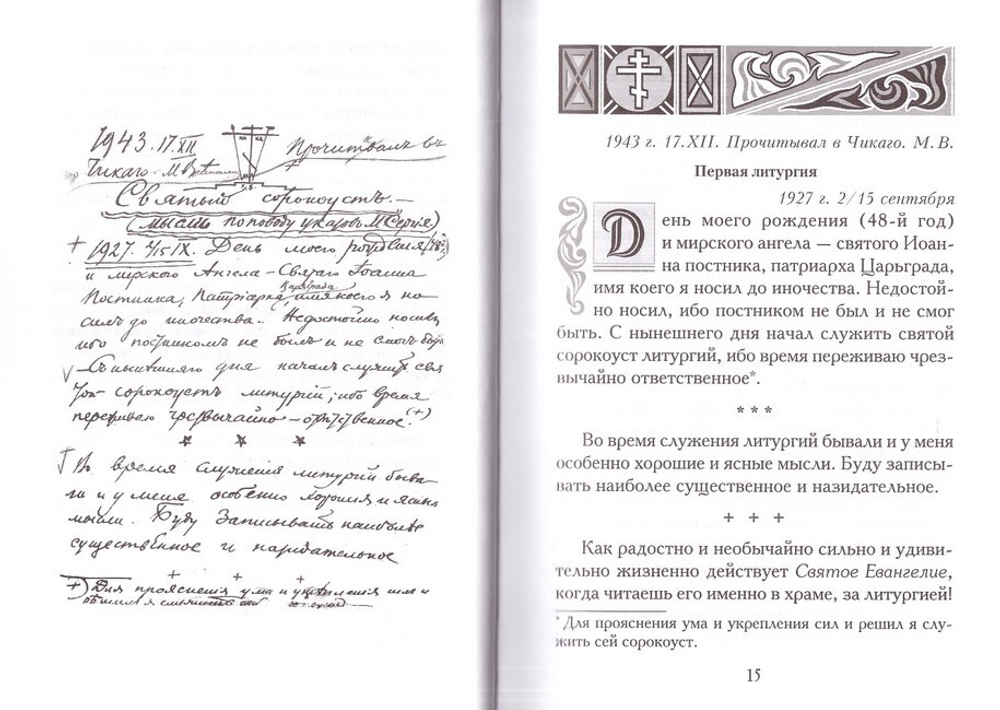 1943. 17.XII
Прочитывалъ въ
Чикаго. М В
Святый сорокоустъ. —
(мысль по поводу указовъ М Сергія)
+ 1927. 2/15 IX. День моего рожденія (48
и мірского Ангела – Святаго Іоанна
Царьграда
Постника, Патріарха, имя коего я но-
силъ до иночества. Недостойно носилъ
ибо постникомъ не былъ и не смогъ быть
Съ нынѣшняго дня началъ служить свя
той сорокоустъ литургій, ибо время
переживаю чрезвычайно – отвѣтственное. (+)
Въ время служенія литургій быва-
ли и у меня особенно хорошія и ясныя
мысли. Буду записывать наиболѣе
существенное и назидательное
+) Для проясненія ума и укрѣпленія силъ и
1943 г. 17.XII. Прочитывал в Чикаго. М. В.
Первая литургия
1927 г. 2/15 сентября
День моего рождения (48-й год)
и мирского ангела — святого Иоан-
на постника, патриарха Царьграда,
имя коего я носил до иночества. Недостой-
но носил, ибо постником не был и не смог
быть. С нынешнего дня начал служить святой
сорокоуст литургий, ибо время переживаю чрез-
вычайно ответственное*.
* * *
Во время служения литургий бывали и у меня
особенно хорошие и ясные мысли. Буду записы-
вать наиболее существенное и назидательное.
+ + +
Как радостно и необычайно сильно и удиви-
тельно жизненно действует Святое Евангелие,
когда читаешь его именно в храме, за литургией!
* Для прояснения ума и укрепления сил и решил я слу-
жить сей сорокоуст.
15